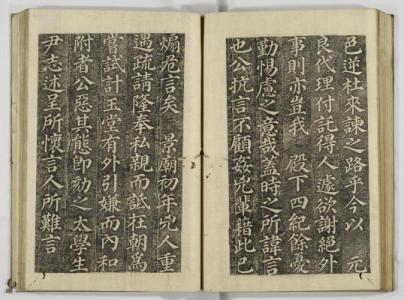 色逆杜來諫之路乎今以 元
良代理付託得人遽欲謝絶外
事則亦豈我 殿下四紀餘憂
勤惕慮之意哉蓋時之所諱言
也公抗言不顧姦兇輩藉此已
煽危言矣 景廟初年兇人重
遇疏請隆奉私親而詆枉朝爲
嘗試計玉堂有外引嫌而内和
附者公惡其態卽劾之太學生
尹志述呈所懷言人所難言